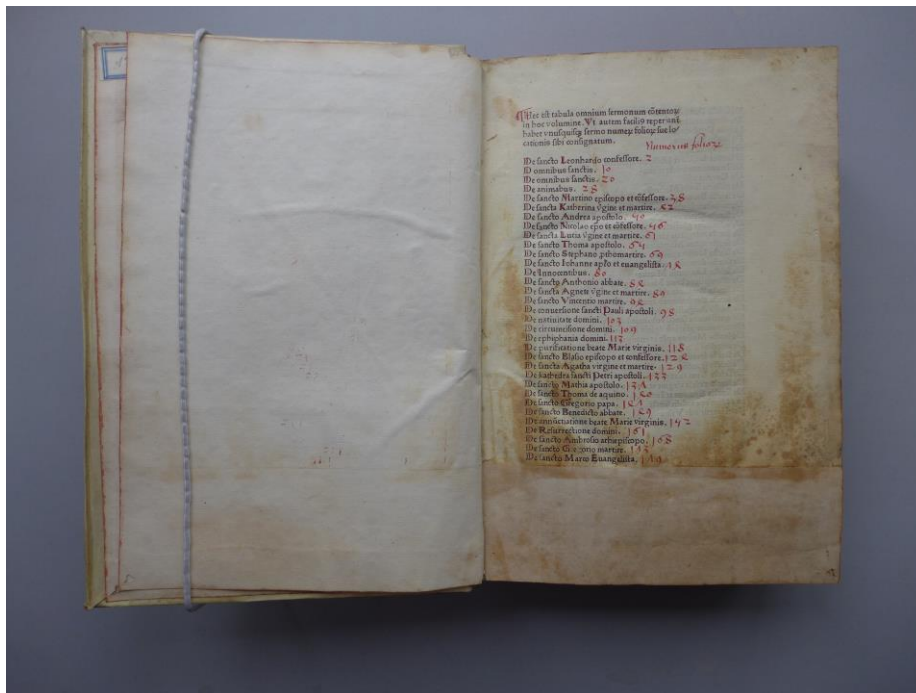 Hec est tabula omnium sermonum cōtentoꝝ
in hoc volumine. Ut autem facilis reperiant᷑
habet vnusquisqꝫ sermo numeꝝ folioꝝ sue lo/
cationis sibi consignatum.
Numerus folioꝝ
De sancto Leonhardo confessore. 2
D omnibus sanctis. 10
De omnibus sanctis. 20
De animabus. 28
De sancto Martino episcopo et cōfessore. 38
De sancta Katherina v̄gine et martire.
De sancto Andrea apostolo. 40
De sancto Nicolao ep̄o et cōfessore. 46
De sancta Lucia v̄gine et martire. 61
De sancto Thoma apostolo. 64
De sancto Stephano ꝓthomartire. 69
De sancto Iohanne apl̄o et euangelista.
De Innocentibus. 80
De sancto Anthonio abbate.
De sancta Agneti v̄gine et martire. 89
De sancto Vincentio martire.
De conuersione sancti Pauli apostoli. 98
De natiuitate domini. 103
De circumcisione domini. 109
De ephiphania domini. 113
De purificatione beate Marie virginis. 118
De sancto Blasio episcopo et confessore.
De sancta Agatha virgine et martire. 129
De kathedra sancti Petri apostoli. 133
De sancto Mathia apostolo.
De sancto Thoma de aquino.
De sancto Gregorio papa.
De sancto Benedicto abbate.
De annūctiatione beate Marie virginis.
De Resurrectione domini. 161
De sancto Ambrosio archiepiscopo. 168
De sancto Georgio martire.
De sancto Marco Euangelista.